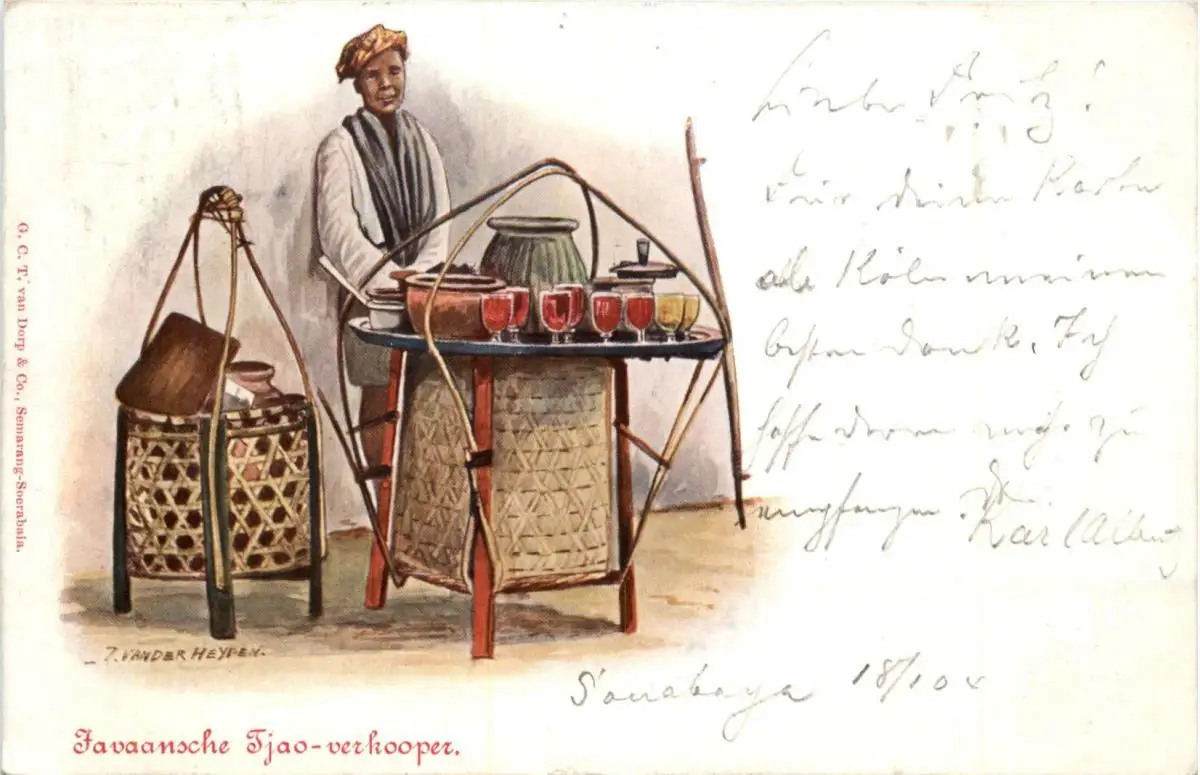 G. C. T. van Dorp & Co., Semarang-Soerabaia.
J. VAN DER HEYDEN.
Javaansche Tjao-verkooper.
Lieber Fritz!
Für deine Karten
Köln meinen
besten Dank. Ich
hoffe deren mehr zu
empfangen.
Karl
Sourabaya 18/10